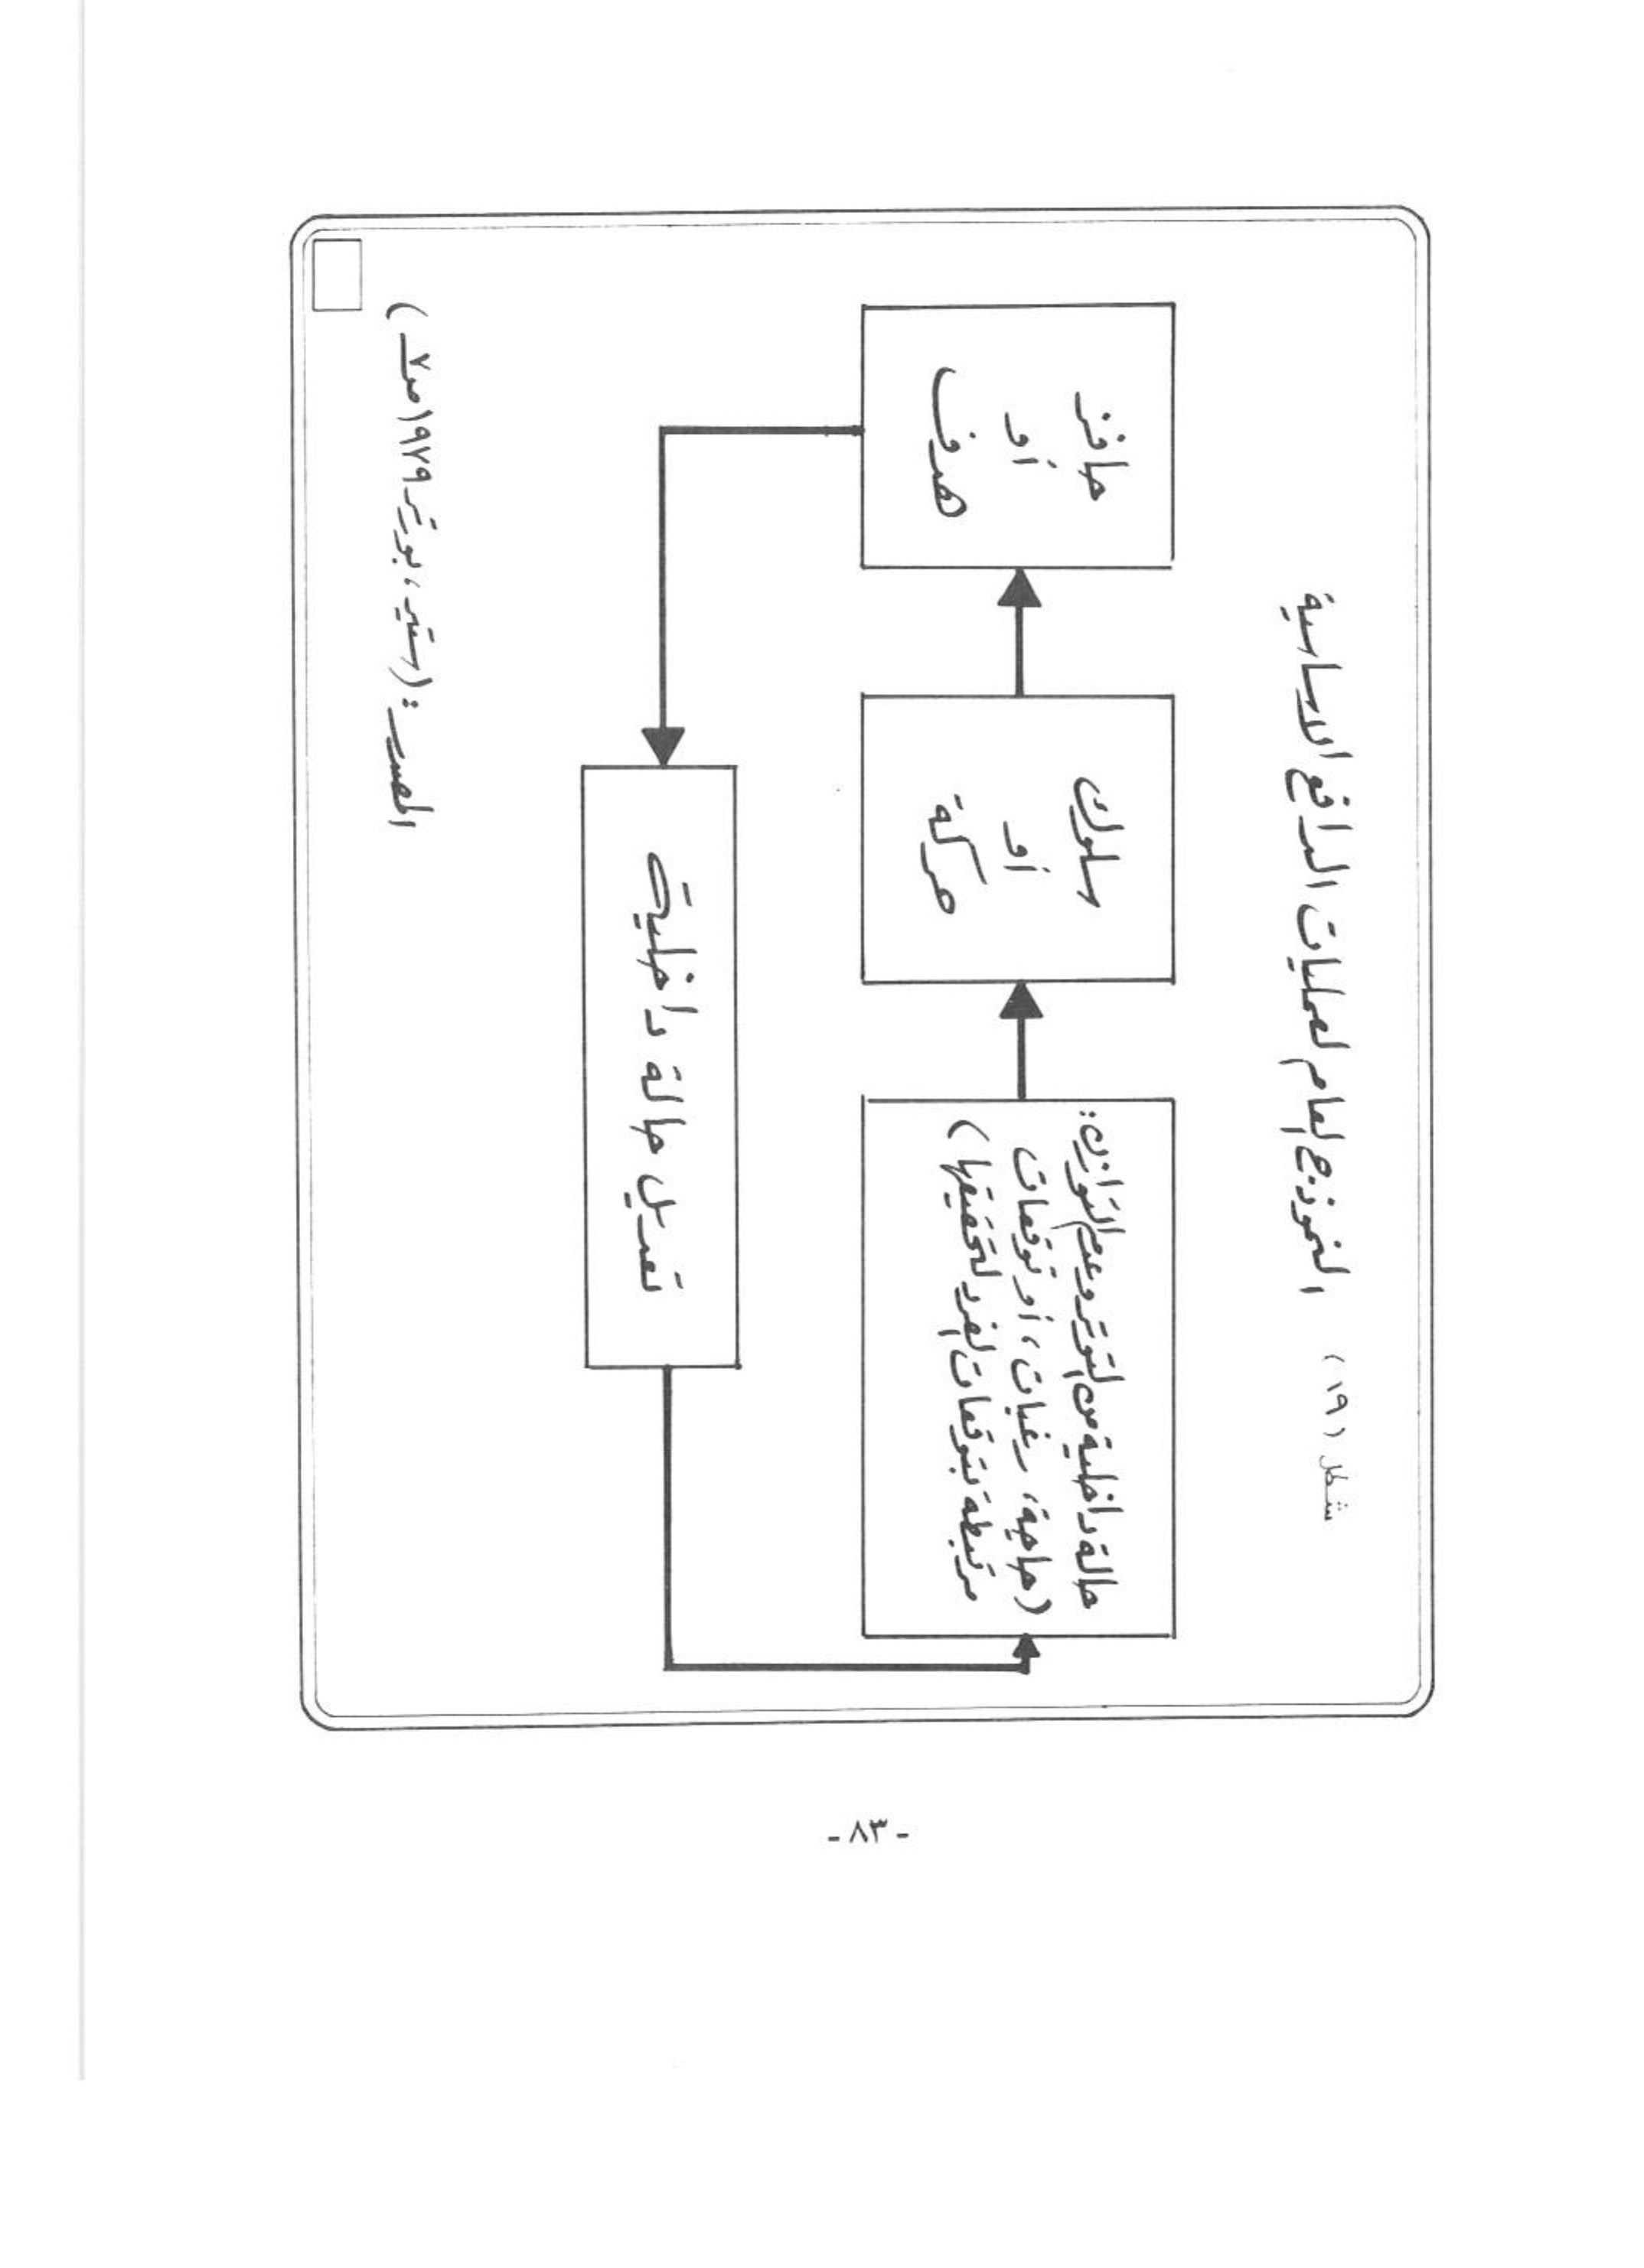 شكل (١٩)
النموذج العام لعمليات الدافع الاساسية
حالة داخلية من التوتر وعدم التوازن:
(حاجة، رغبات، أو توقعات
مرتبطة بتوقعات الفرد لتحقيقها)
سلوك
أو
حركة
حافز
أو
هدف
تعديل حالة داخلية
المصدر: (ستيرز، بورتر ١٩٧٩ ص٧)
- ٨٣ -